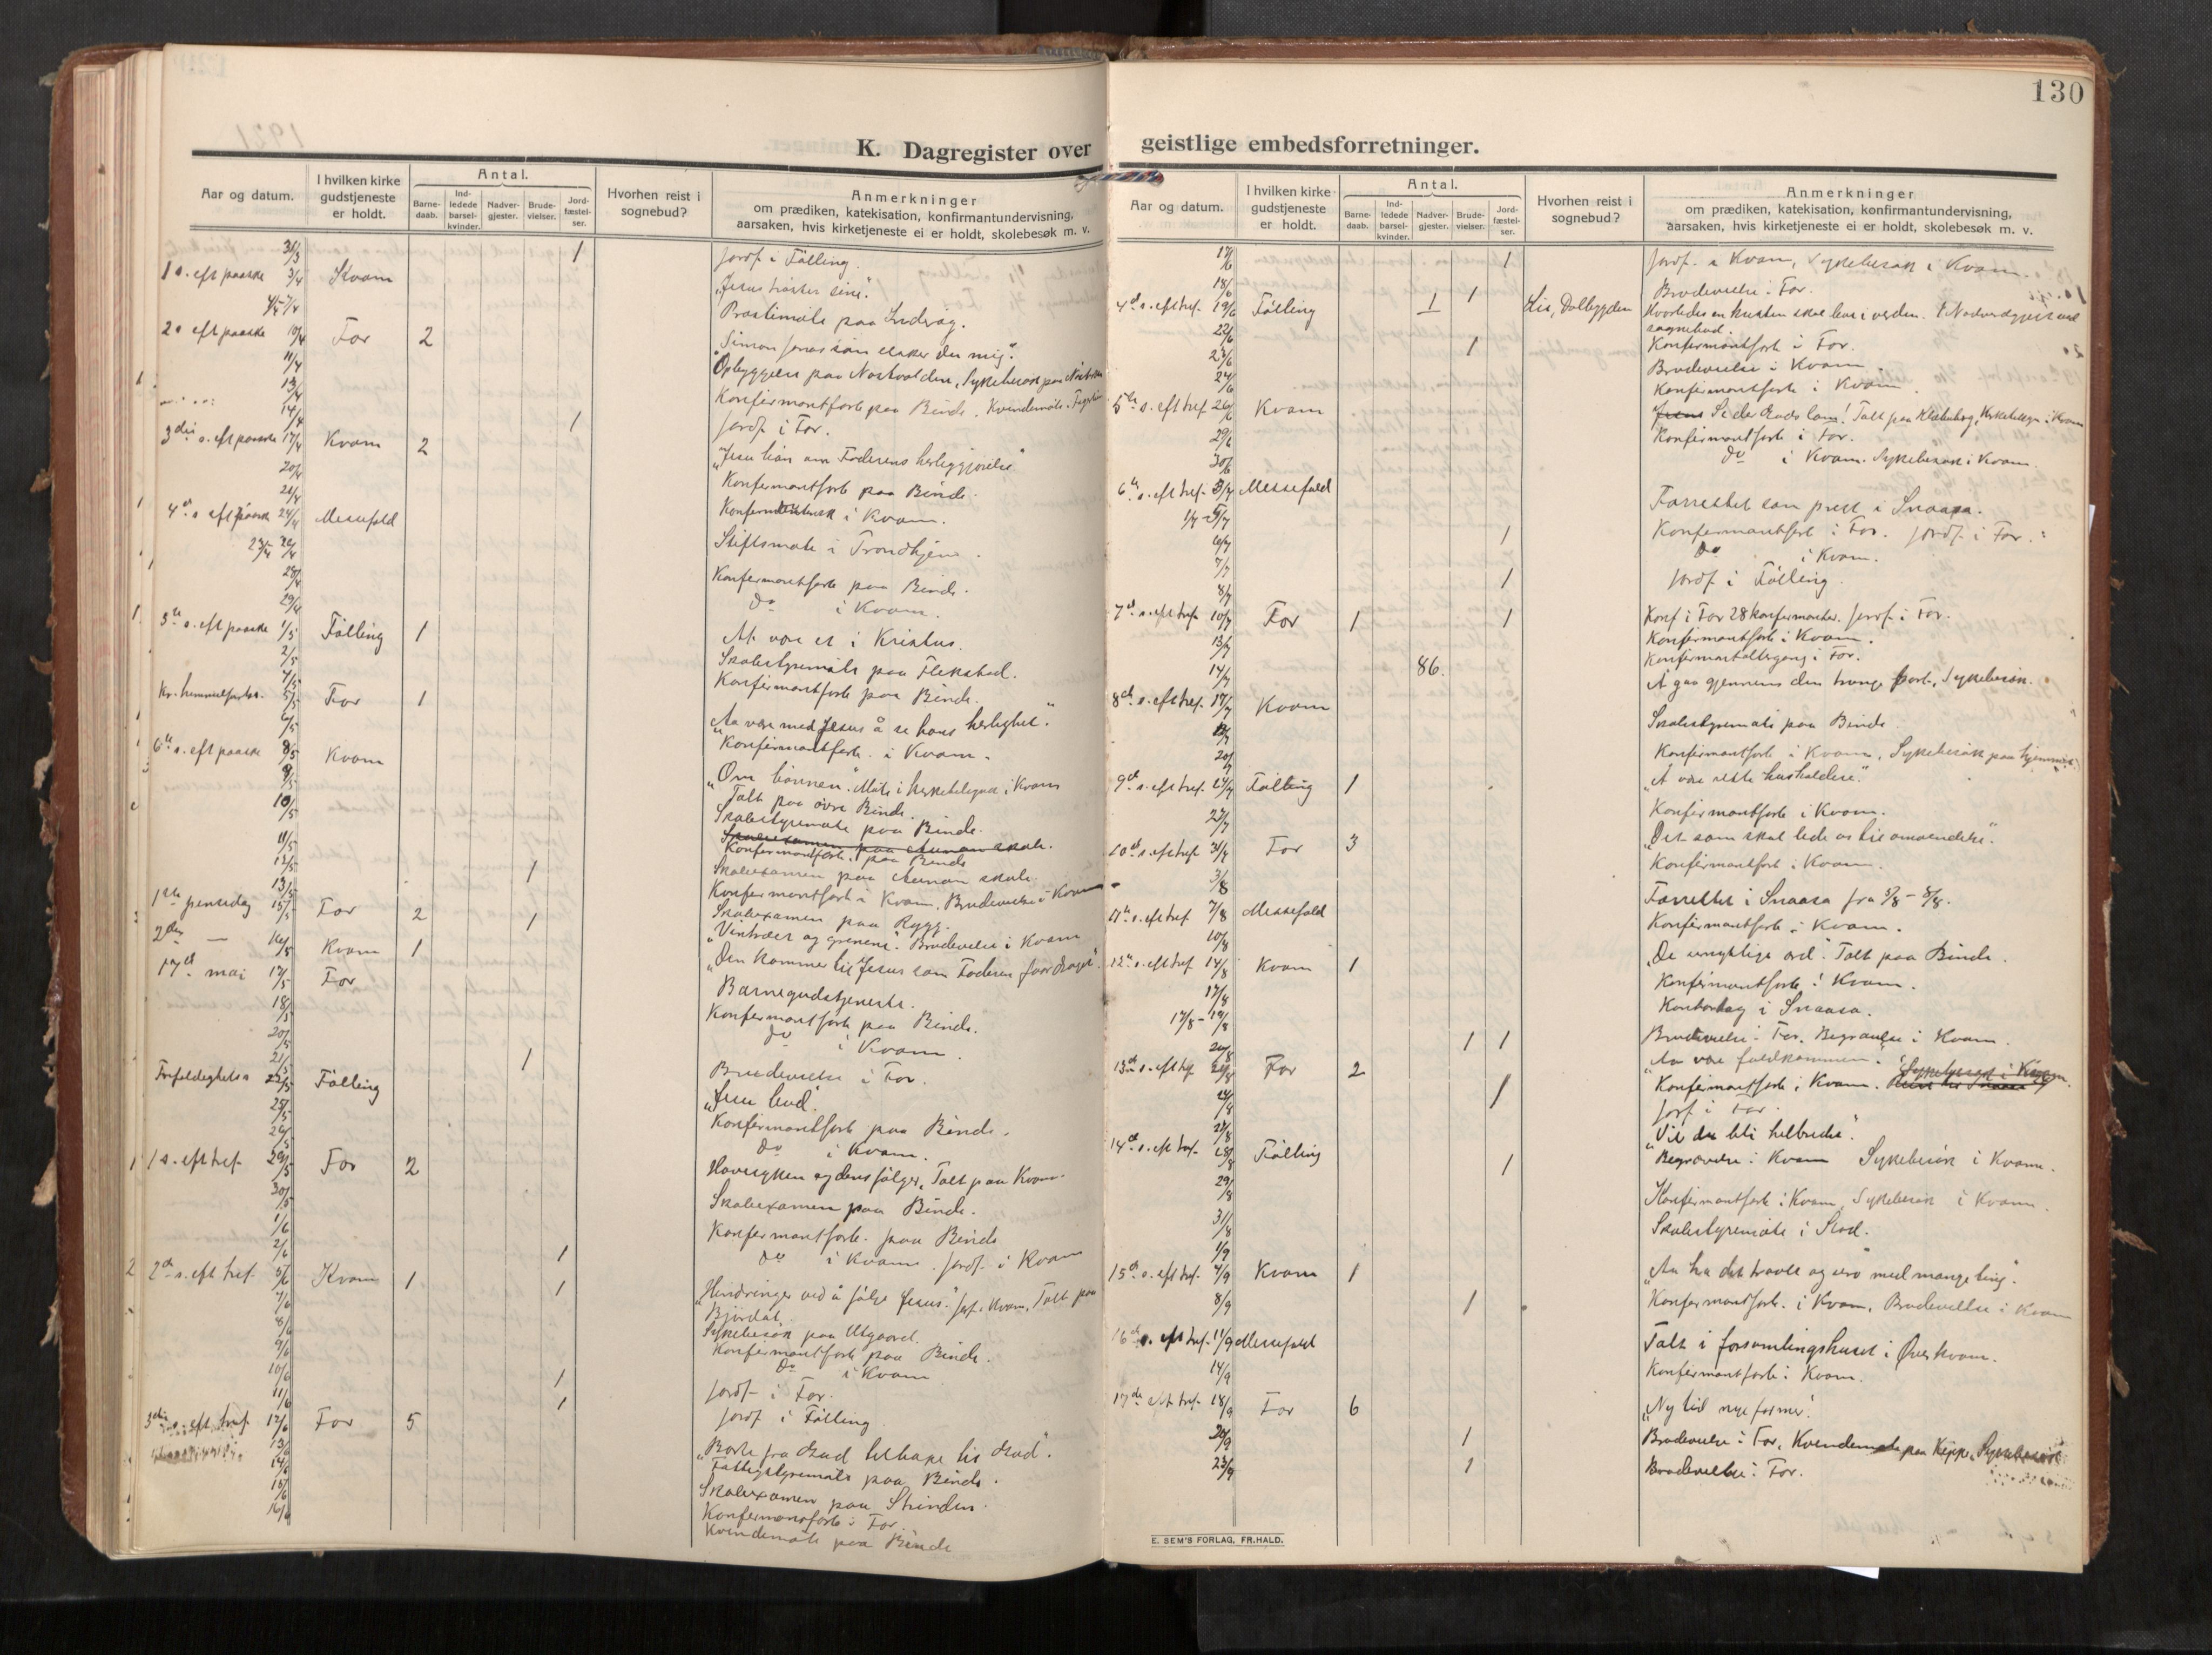 K. Dagregister over
Aar og datum.
I hvilken kirke gudstjeneste er holdt.
Antal.
Barne-daab.
Ind-ledede barsel-kvinder.
Nadver-gjester.
Brude-vielser.
Jord-fæstel-ser.
Hvorhen reist i sognebud?
Anmerkninger
om prædiken, katekisation, konfirmantundervisning,
aarsaken, hvis kirketjeneste ei er holdt, skolebesøk m. v.
31/3 1 Jordf. i Følling.
1 s. eft paaske 3/4 Kvam
4/4-7/4 Prostimøte paa Inderøy.
2 s eft paaske 10/4 For 2 "Simon Jonas søn elsker du mig".
11/4
13/4 Konfirmantforb paa Binde. Kvindemøte i
14/4 1 Jordf. i For.
3die s. eft paaske 17/4 Kvam 2 "Jesu bøn om Faderens herliggjørelse"
20/4 Konfirmantforb paa Binde.
21/4 i Kvam.
4de s eft paaske 24/4 Messefald
Stiftsmøte i Trondhjem.
28/4 Konfirmantforb paa Binde.
29/4 Do i Kvam.
5te s. eft paaske 1/5 Følling 1 At være et i Kristus.
2/5 Skolestyremøte paa Flekstad.
4/5 Konfirmantforb paa Binde.
Kr. himmelfartsd. 5/5 For 1 "Aa være med Jesus å se hans herlighet".
6/5 Konfirmantforb. i Kvam.
6te s. eft paaske 8/5 Kvam "Om bønnen". Møte i Kvam
9/5 Talt paa øvre Binde.
10/5 Skolestyremøte paa Binde.
11/5 Konfirmantforb. paa Binde
12/5 Skoleexamen paa Aunan skole.
13/5 1 Konfirmantforb i Kvam. Brudevielse i Kvam
Skoleexamen paa Rygg.
1ste pinsedag 15/5 For 2 1 "Vintræet og grenene". Brudevielse i Kvam
2den — 16/5 Kvam 1 "Den kommer til Jesus som Faderen faar draget".
17de mai 17/5 For Barnegudstjeneste.
18/5 Konfirmantforb paa Binde.
20/5 Do i Kvam.
21/5 1 Brudevielse i For.
Trefoldighets s 22/5 Følling "Jesu bud".
25/5 Konfirmantforb paa Binde.
26/5 Do i Kvam.
1 s. eft tref. 29/5 For 2 Havesyken og dens følger. Talt paa Kvam.
30/5 Skoleexamen paa Binde.
1/6 Konfirmantforb. paa Binde
2/6 1 Do i Kvam. Jordf. i Kvam
2den s. eft tref. 5/6 Kvam 1 1 "Hindringer ved å følge Jesus". Jordf. i Kvam. Talt paa
7/6 Sykebesøk paa Utgaard.
8/6 Konfirmantforb paa Binde.
9/6 Do i Kvam
10/6 1 Jordf. i For.
11/6 1 Jordf. i Følling
3die s. eft tref. 12/6 For 5 "Borte fra Gud tilbake til Gud".
13/6 Fattigstyremøte paa Binde.
14/6 Skoleexamen paa Strinden.
15/6 Konfirmantforb i For.
16/6 Kvindemøte paa Binde
130
geistlige embedsforretninger.
Aar og datum.
I hvilken kirke gudstjeneste er holdt.
Antal.
Barne-daab.
Ind-ledede barsel-kvinder.
Nadver-gjester.
Brude-vielser.
Jord-fæstel-ser.
Hvorhen reist i sognebud?
Anmerkninger
om prædiken, katekisation, konfirmantundervisning,
aarsaken, hvis kirketjeneste ei er holdt, skolebesøk m. v.
17/6 1 Jordf. i Kvam, Sykebesøk i Kvam.
18/6 1 Brudevielse i For.
4de s. eft tref. 19/6 Følling 1 Hvorledes en kristen skal leve i verden. 1 Nadvergjest ved
sognebud.
22/6 Konfirmantforb i For.
23/6 1 Brudevielse i Kvam.
24/6 Konfirmantforb i Kvam.
5te s. eft tref 26/6 Kvam Se der Guds lam! Talt paa
29/6 Konfirmantforb i For.
30/6 Do i Kvam. Sykebesøk i Kvam.
6te s. eft tref. 3/7 Messefald Forrettet som prest i Snaasa.
6/7 1 Konfirmantforb i For. Jordf. i For.
7/7 Do i Kvam.
8/7 1 Jordf. i Følling.
7de s. eft tref. 10/7 For 1 1 Konf i For 28 konfirmanter. Jordf. i For.
13/7 Konfirmantforb i Kvam.
14/7 86. Konfirmantaltergang i For.
8de s. eft tref. 17/7 Kvam At gaa gjennem den trange port. Sykebesøk.
Skolestyremøte paa Binde.
20/7 Konfirmantforb i Kvam, Sykebesøk paa
9de s. eft tref. 24/7 Følling 1 "At være rette husholdere".
27/7 Konfirmantforb i Kvam.
10de s. eft tref 31/7 For 3 "Det som skal lede os til omvendelse".
3/8 Konfirmantforb i Kvam.
11te s. eft tref 7/8 Messefald Forrettet i Snaasa fra 5/8 - 8/8.
10/8 Konfirmantforb i Kvam.
12te s. eft tref 14/8 Kvam 1 "De unyttige ord". Talt paa Binde.
17/8 Konfirmantforb i Kvam.
17/8 - 19/8 i Snaasa.
20/8 1 1 Brudevielse i For. Begravelse i Kvam.
13de s. eft tref 21/8 For 2 "Aa være fuldkommen".
Konfirmantforb i Kvam.
1 Jordf i For.
14de s. eft tref. 28/8 Følling "Vil du bli helbredet".
29/8 1 Begravelse i Kvam Sykebesøk i Kvam.
31/8 Konfirmantforb i Kvam, Sykebesøk i Kvam.
1/9 Skolestyremøte i Stod.
15de s. eft tref. 4/9 Kvam 1 "Aa ha det travelt og uro med mange ting".
8/9 1 Konfirmantforb. i Kvam, Brudevielse i Kvam
16de s. eft tref. 11/9 Messefald Talt i forsamlingshuset i Øverkvam.
14/9 Konfirmantforb i Kvam.
17de eft tref. 18/9 For 6 "Ny tid nye former".
20/9 1 Brudevielse i For, Kvindemøte paa Kipp. Sykebesøk
23/9 1 Brudevielse i For.
E. SEM'S FORLAG, FR.HALD.